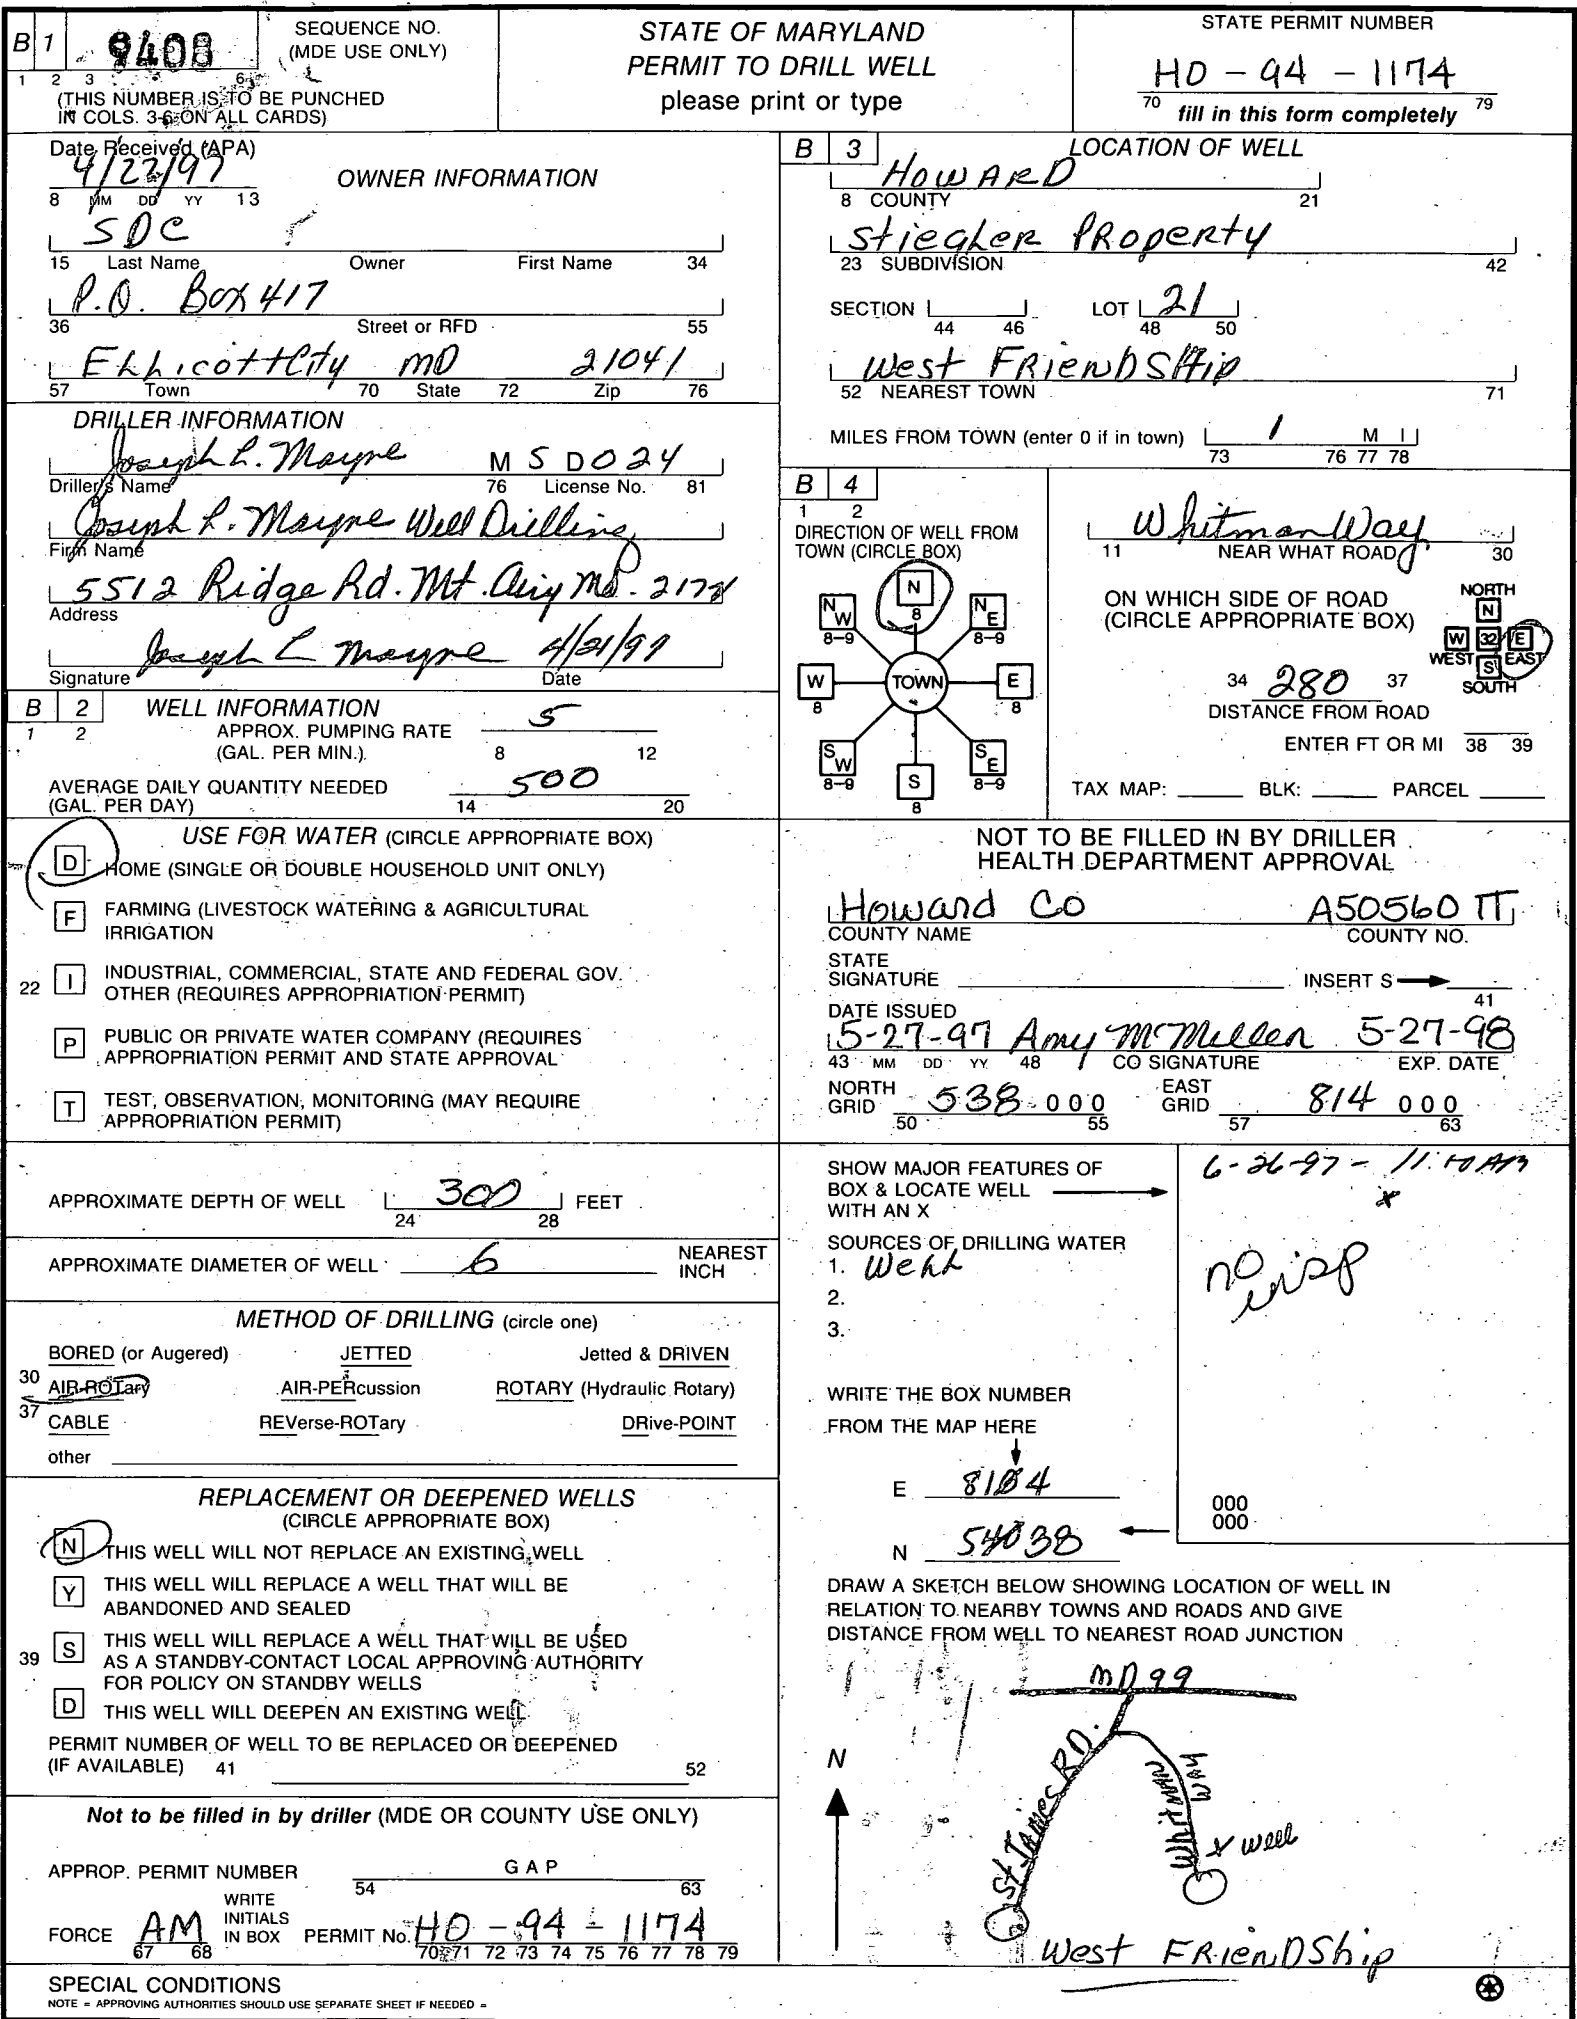 B 1
9408
SEQUENCE NO.
(MDE USE ONLY)
1 2 3 6
(THIS NUMBER IS TO BE PUNCHED
IN COLS. 3-6 ON ALL CARDS)
STATE OF MARYLAND
PERMIT TO DRILL WELL
please print or type
STATE PERMIT NUMBER
HO - 94 - 1174
70 fill in this form completely 79
Date Received (APA)
4/22/97
8 MM DD YY 13
OWNER INFORMATION
SDC
15 Last Name Owner First Name 34
P.O. Box 417
36 Street or RFD 55
Ellicott City MD 21041
57 Town 70 State 72 Zip 76
DRILLER INFORMATION
Joseph L. Mayne M S D 024
Driller's Name 76 License No. 81
Joseph L. Mayne Well Drilling
Firm Name
5512 Ridge Rd. Mt. Airy Md. 21771
Address
Joseph L Mayne 4/21/97
Signature Date
B 2
1 2
WELL INFORMATION
APPROX. PUMPING RATE 5
(GAL. PER MIN.) 8 12
AVERAGE DAILY QUANTITY NEEDED 500
(GAL. PER DAY) 14 20
USE FOR WATER (CIRCLE APPROPRIATE BOX)
D HOME (SINGLE OR DOUBLE HOUSEHOLD UNIT ONLY)
F FARMING (LIVESTOCK WATERING & AGRICULTURAL
IRRIGATION
22 I INDUSTRIAL, COMMERCIAL, STATE AND FEDERAL GOV.
OTHER (REQUIRES APPROPRIATION PERMIT)
P PUBLIC OR PRIVATE WATER COMPANY (REQUIRES
APPROPRIATION PERMIT AND STATE APPROVAL
T TEST, OBSERVATION, MONITORING (MAY REQUIRE
APPROPRIATION PERMIT)
APPROXIMATE DEPTH OF WELL 300 FEET
24 28
APPROXIMATE DIAMETER OF WELL 6 NEAREST
INCH
METHOD OF DRILLING (circle one)
BORED (or Augered) JETTED Jetted & DRIVEN
30 AIR-ROTary AIR-PERcussion ROTARY (Hydraulic Rotary)
37 CABLE REVerse-ROTary DRive-POINT
other
REPLACEMENT OR DEEPENED WELLS
(CIRCLE APPROPRIATE BOX)
N THIS WELL WILL NOT REPLACE AN EXISTING WELL
Y THIS WELL WILL REPLACE A WELL THAT WILL BE
ABANDONED AND SEALED
39 S THIS WELL WILL REPLACE A WELL THAT WILL BE USED
AS A STANDBY-CONTACT LOCAL APPROVING AUTHORITY
FOR POLICY ON STANDBY WELLS
D THIS WELL WILL DEEPEN AN EXISTING WELL
PERMIT NUMBER OF WELL TO BE REPLACED OR DEEPENED
(IF AVAILABLE) 41 52
Not to be filled in by driller (MDE OR COUNTY USE ONLY)
APPROP. PERMIT NUMBER G A P
54 63
FORCE AM WRITE
INITIALS
IN BOX PERMIT No. HO - 94 - 1174
67 68 70 71 72 73 74 75 76 77 78 79
SPECIAL CONDITIONS
NOTE = APPROVING AUTHORITIES SHOULD USE SEPARATE SHEET IF NEEDED =
B 3
LOCATION OF WELL
HOWARD
8 COUNTY 21
Stiegler Property
23 SUBDIVISION 42
SECTION LOT 21
44 46 48 50
West FRienDSHip
52 NEAREST TOWN 71
MILES FROM TOWN (enter 0 if in town) 1 M I
73 76 77 78
B 4
1 2
DIRECTION OF WELL FROM
TOWN (CIRCLE BOX)
N
8
NW NE
8-9 8-9
W TOWN E
8 8
SW SE
8-9 8-9
S
8
Whitman Way
11 NEAR WHAT ROAD 30
ON WHICH SIDE OF ROAD
(CIRCLE APPROPRIATE BOX)
NORTH
N
W 32 E
WEST S EAST
SOUTH
34 280 37
DISTANCE FROM ROAD
ENTER FT OR MI 38 39
TAX MAP: BLK: PARCEL
NOT TO BE FILLED IN BY DRILLER
HEALTH DEPARTMENT APPROVAL
Howard Co A50560
COUNTY NAME COUNTY NO.
STATE
SIGNATURE INSERT S
41
DATE ISSUED
5-27-97 Amy McMillen 5-27-98
43 MM DD YY 48 CO SIGNATURE EXP. DATE
NORTH
GRID 538 000 EAST
GRID 814 000
50 55 57 63
SHOW MAJOR FEATURES OF
BOX & LOCATE WELL
WITH AN X
6-26-97 - 11:10 AM
x
no insp
SOURCES OF DRILLING WATER
1. Well
2.
3.
WRITE THE BOX NUMBER
FROM THE MAP HERE
E
N
000
000
DRAW A SKETCH BELOW SHOWING LOCATION OF WELL IN
RELATION TO NEARBY TOWNS AND ROADS AND GIVE
DISTANCE FROM WELL TO NEAREST ROAD JUNCTION
MD 99
N
St. James RD.
Whitman Way
x well
West FRienDShip